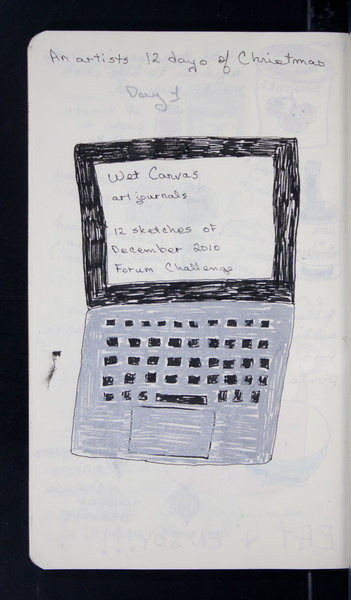 An artists 12 days of Christmas
Day 1
Wet Canvas
art journals
12 sketches of
December 2010
Forum Challenge